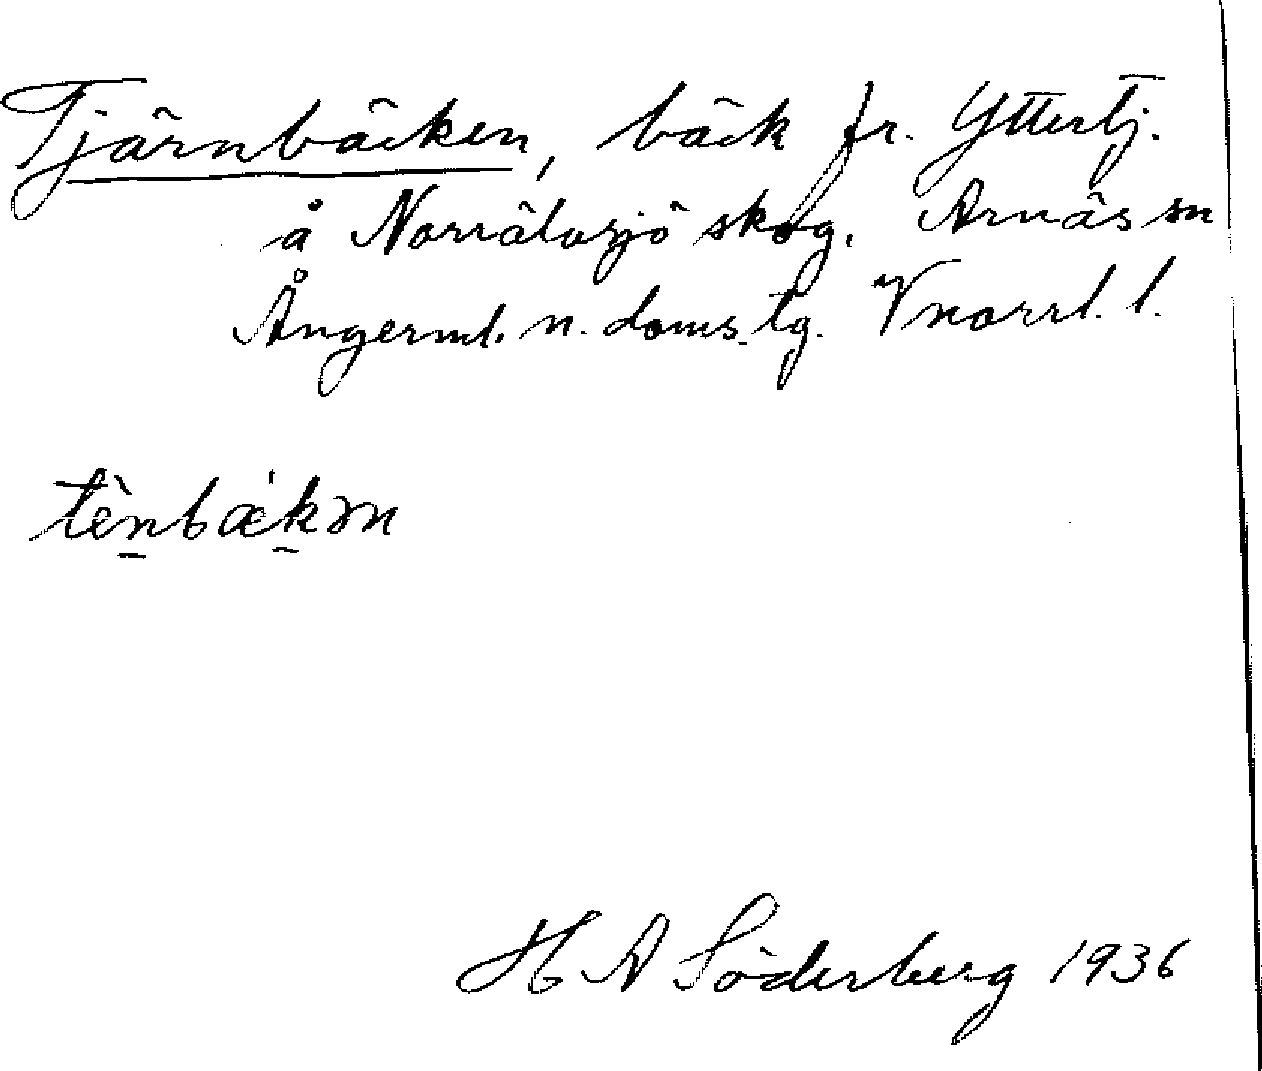 Tjärnbäcken, bäck fr. Yttertj.
å Norrälasjö skog. Arnäs sn
Ångerml. n. doms. tg. Vnorrl. l.
tènbæ̀kən
H A Söderberg 1936